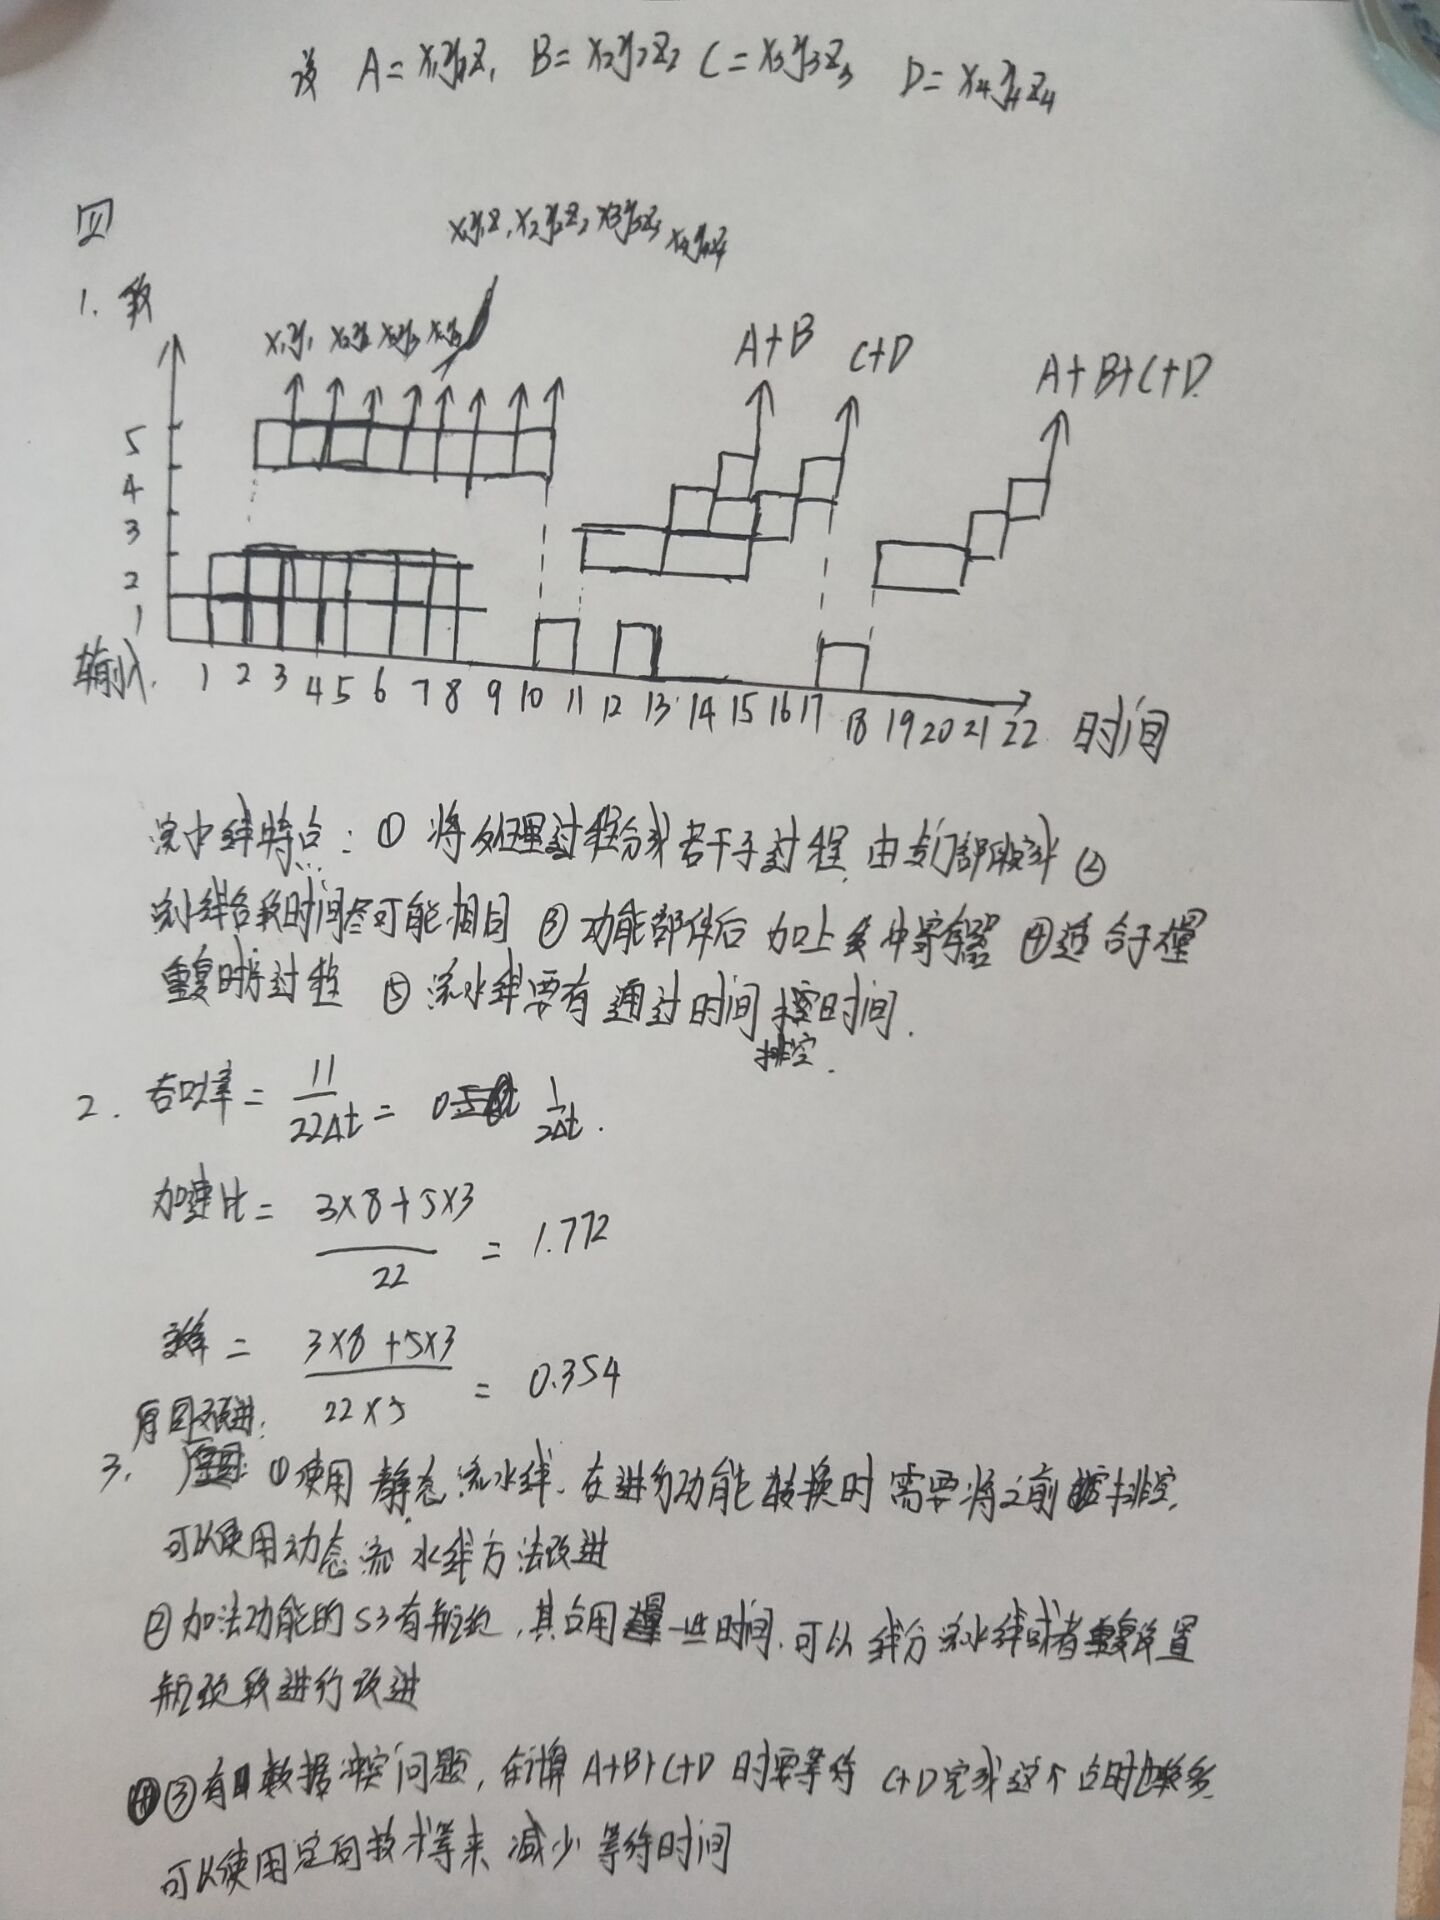 设 A=x₁y₁z₁ B=x₂y₂z₂ C=x₃y₃z₃ D=x₄y₄z₄
四
x₁y₁z₁ x₂y₂z₂ x₃y₃z₃ x₄y₄z₄
1. 段
x₁y₁ x₂y₂ x₃y₃ x₄y₄
A+B C+D A+B+C+D
5
4
3
2
1
输入 1 2 3 4 5 6 7 8 9 10 11 12 13 14 15 16 17 18 19 20 21 22 时间
流水线特点: ① 将处理过程分成若干子过程 由专门部段完成 ②
流水线各段时间尽可能相同 ③ 功能部件后加上缓冲寄存器 ④ 适合于大量
重复时序过程 ⑤ 流水线要有通过时间 时间.
排空.
2. 吞吐率 = 11/22Δt = 1/2Δt.
加速比 = (3×8+5×3)/22 = 1.772
效率 = (3×8+5×3)/(22×5) = 0.354
原因及改进:
3. ①使用静态流水线. 在进行功能转换时需要将之前 排空.
可以使用动态流水线方法改进
②加法功能的S3有瓶颈, 其占用 一些时间. 可以细分流水线或者重复设置
瓶颈段进行改进
③有 数据冲突问题, 在计算A+B+C+D时要等待 C+D完成这个占时 较多.
可以使用定向技术等来减少等待时间